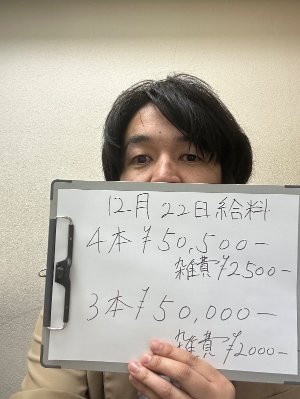 12月22日給料
4本¥50,500-
雑費¥2500-
3本¥50,000-
雑費¥2000-